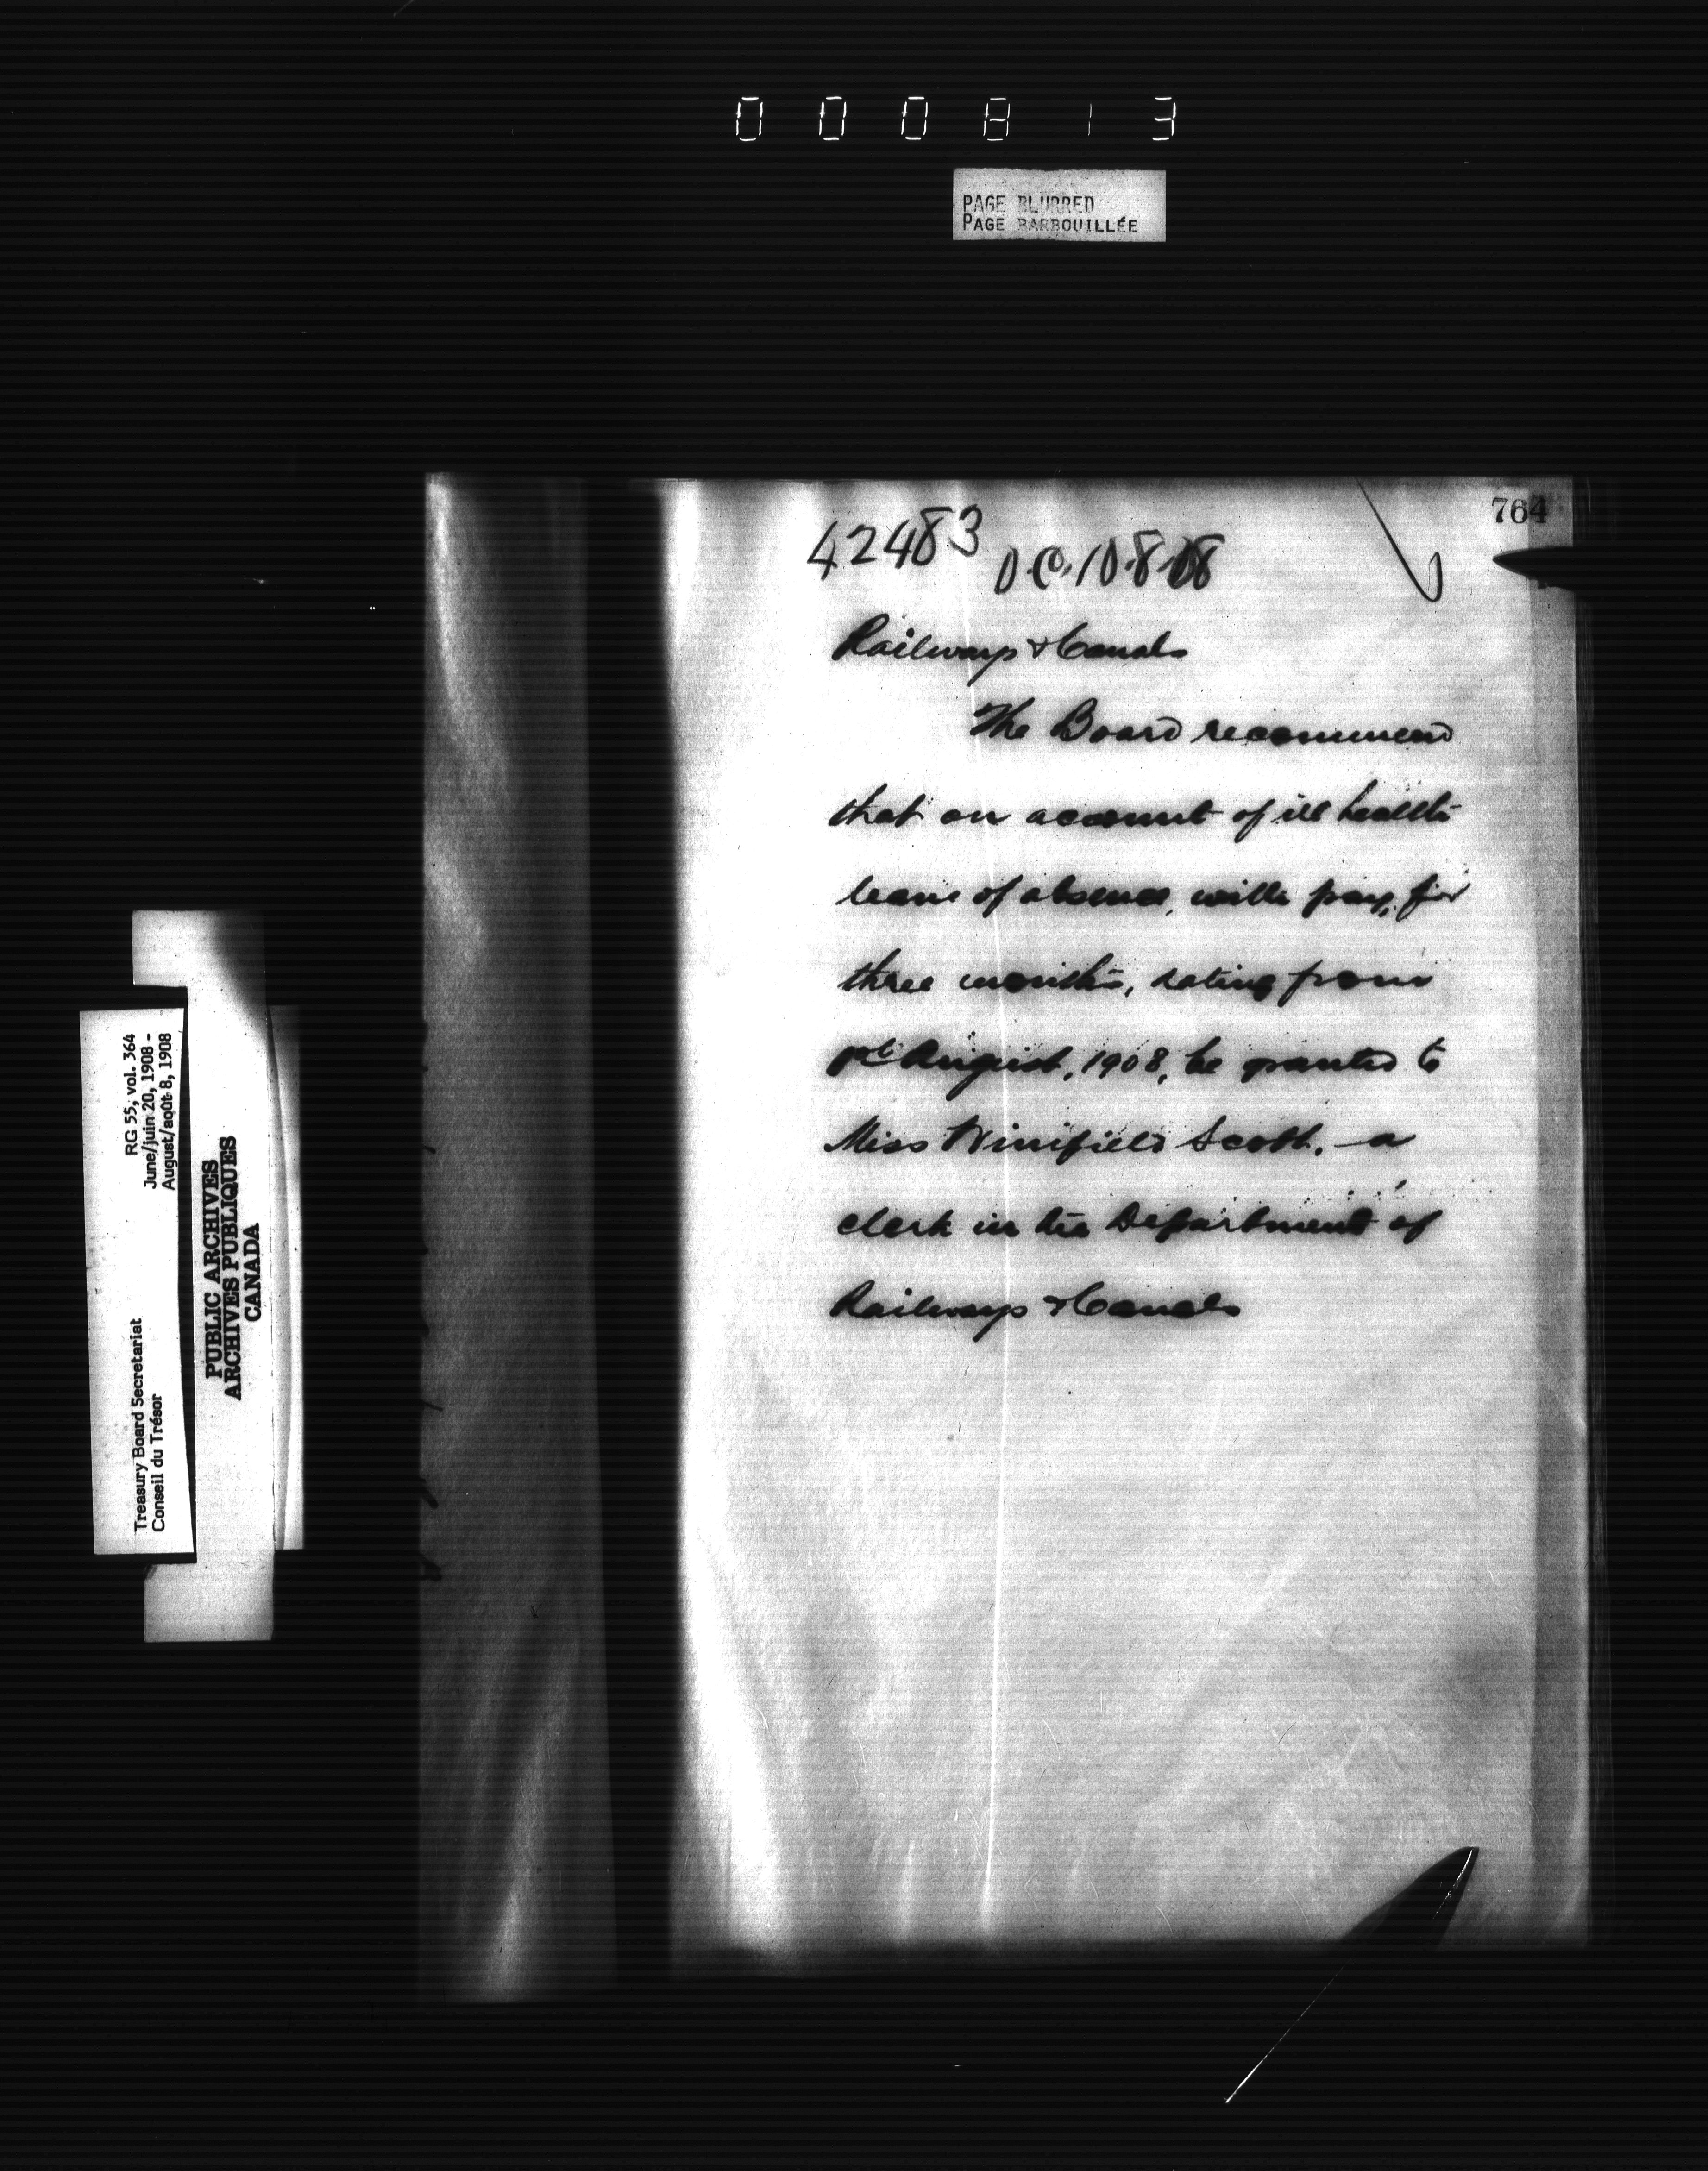 000813
PAGE BLURRED
PAGE BARBOUILLÉE
764
42483 O.C. 10.8.08
Railways & Canals
The Board recommend
that on account of ill health
leave of absence, with pay, for
three months, dating from
1st August, 1908, be granted to
Miss Winifield Scott, a
clerk in the Department of
Railways & Canals
RG 55, vol. 364
June/juin 20, 1908 -
August/août 8, 1908
Treasury Board Secretariat
Conseil du Trésor
PUBLIC ARCHIVES
ARCHIVES PUBLIQUES
CANADA